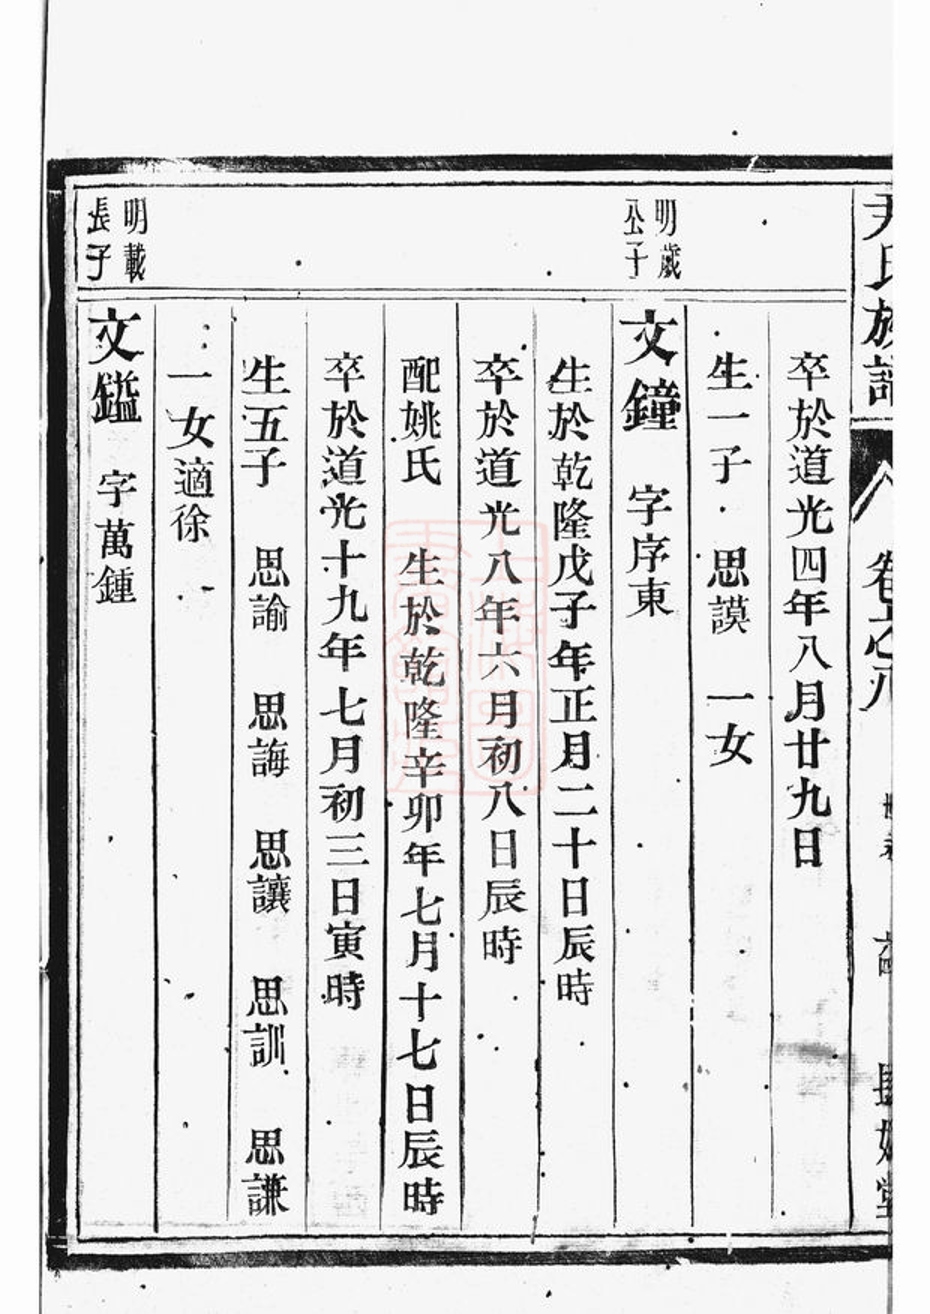 尹氏族譜 卷之八
卒於道光四年八月廿九日
生一子 思謨 一女
明歲
公子
文鐘 字序東
生於乾隆戊子年正月二十日辰時
卒於道光八年六月初八日辰時
配姚氏 生於乾隆辛卯年七月十七日辰時
卒於道光十九年七月初三日寅時
生五子 思諭 思誨 思讓 思訓 思謙
一女適徐
明載
長子
文鎰 字萬鍾